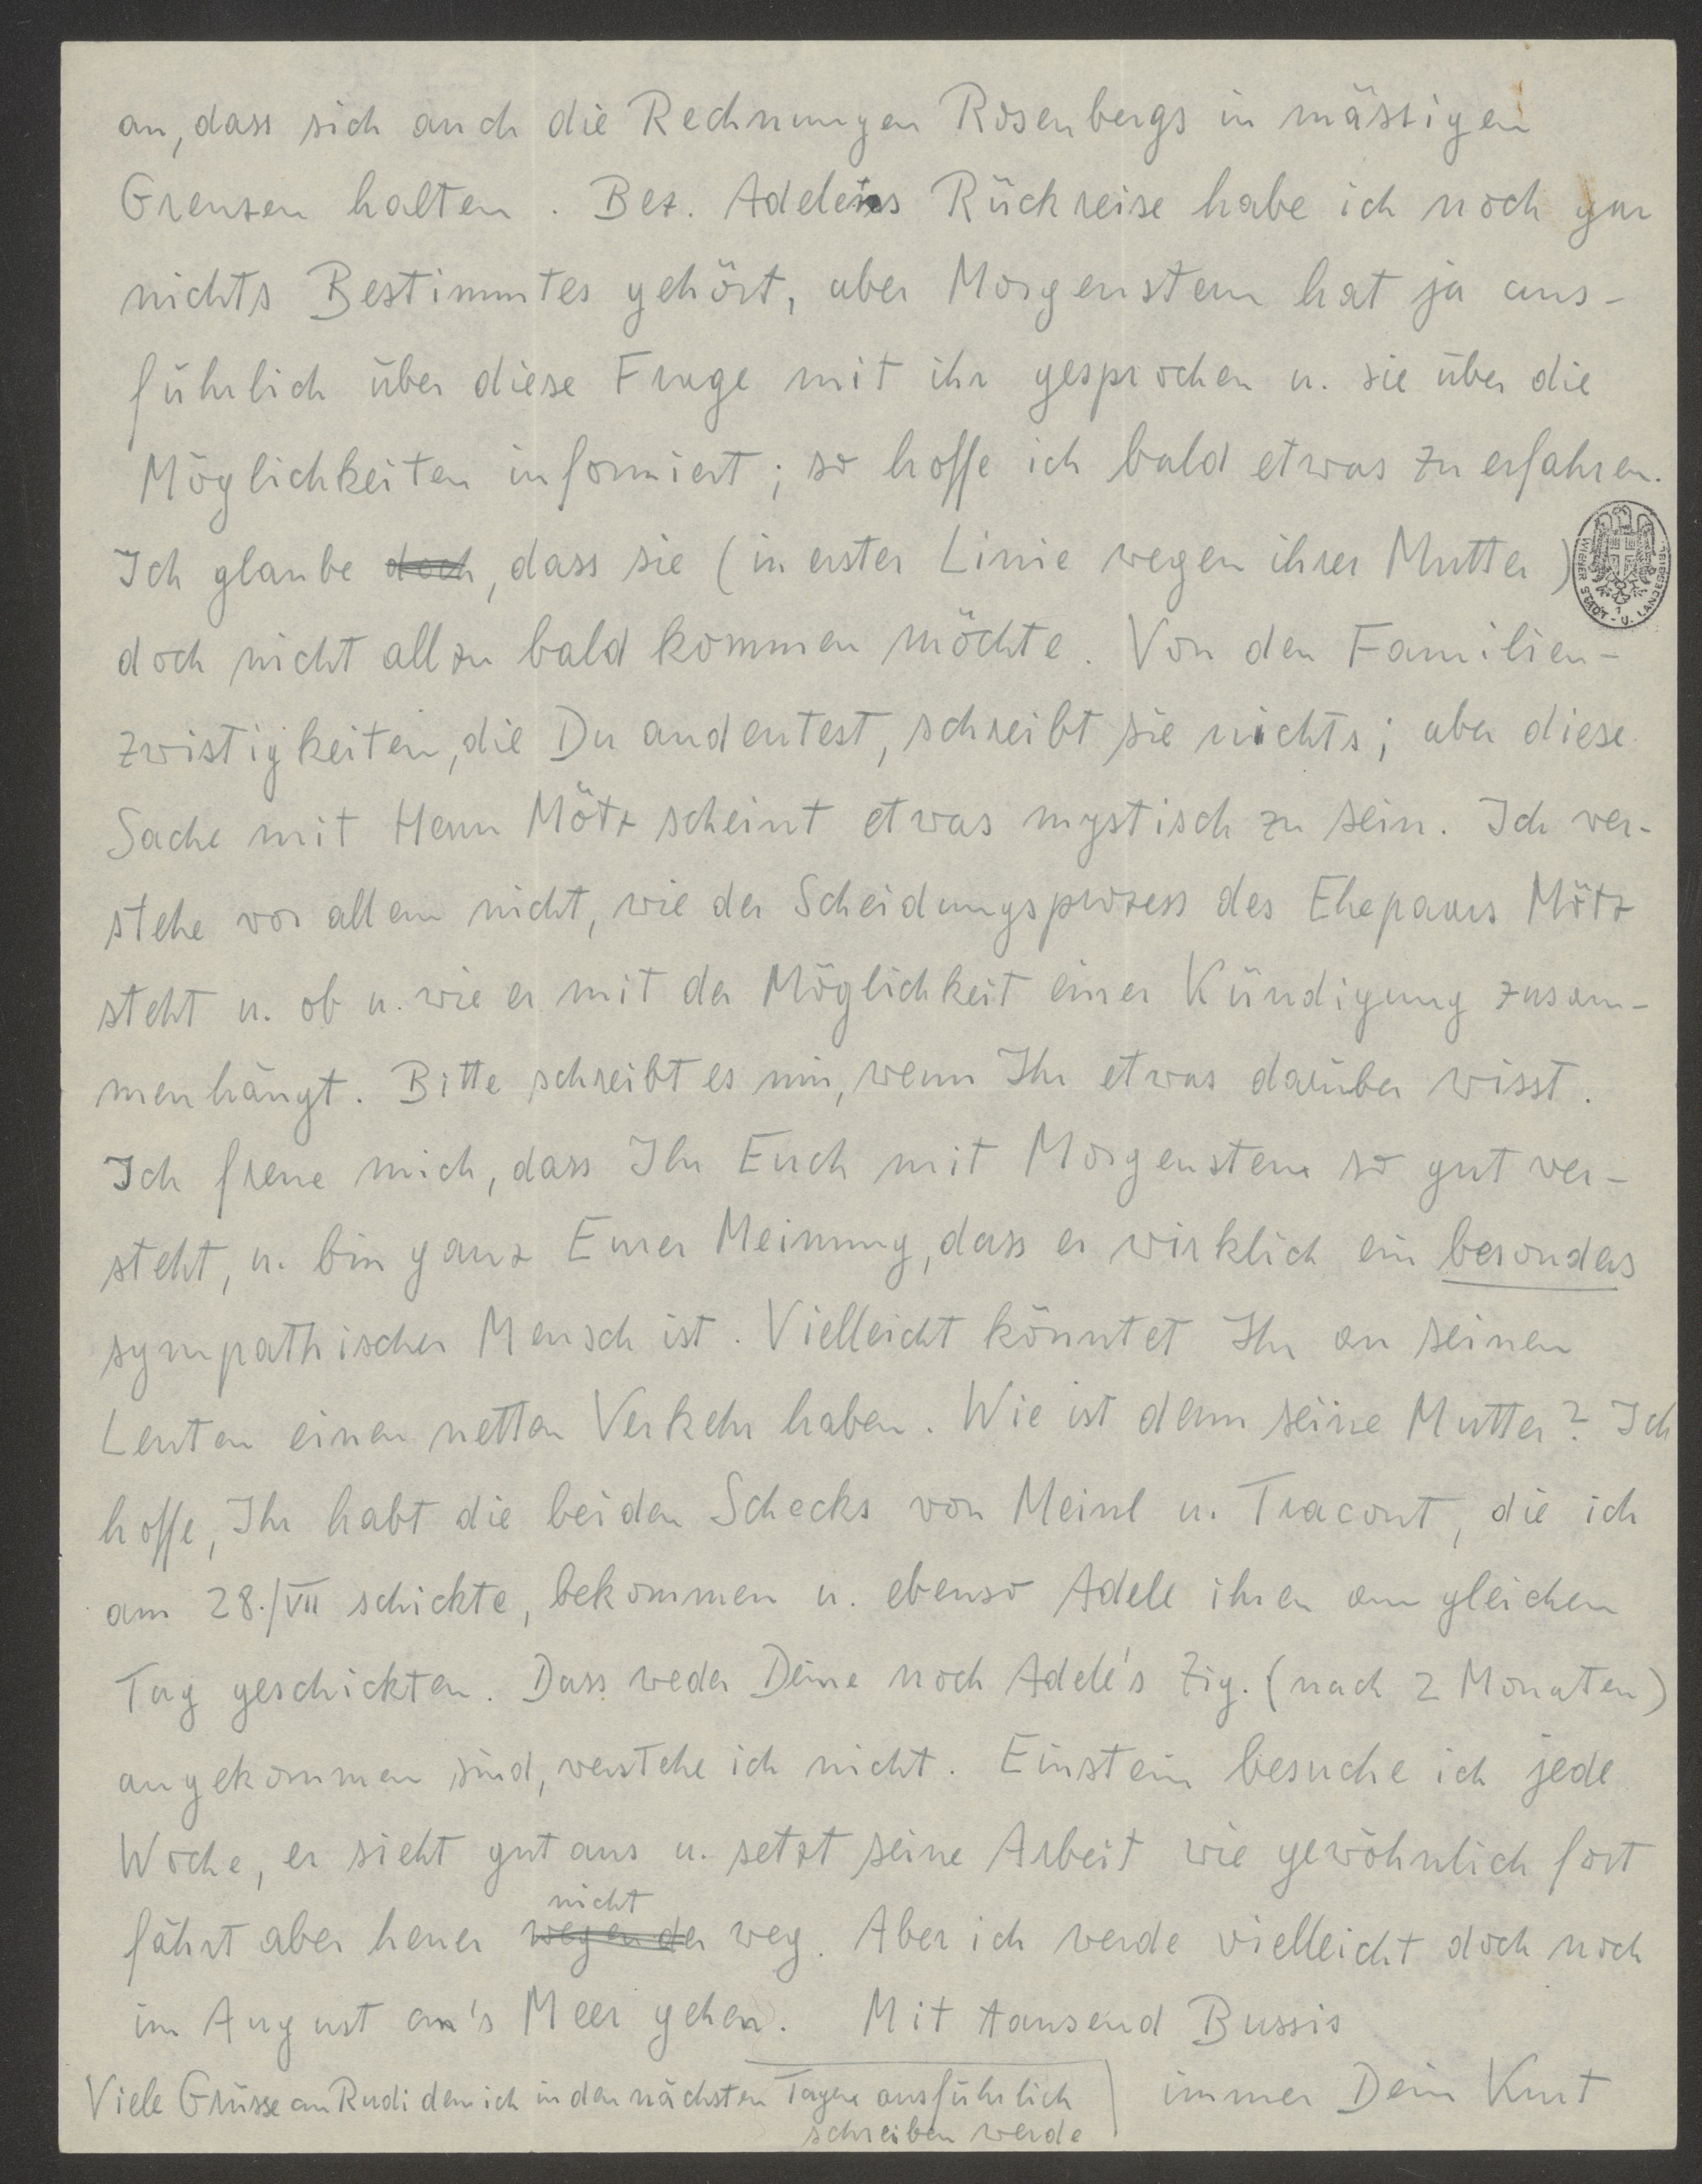 an, dass sich auch die Rechnungen Rosenbergs in mässigen
Grenzen halten. Bez. Adeles Rückreise habe ich noch gar
nichts Bestimmtes gehört, aber Morgenstern hat ja aus-
führlich über diese Frage mit ihr gesprochen u. sie über die
Möglichkeiten informiert; so hoffe ich bald etwas zu erfahren.
Ich glaube doch, dass sie (in erster Linie wegen ihrer Mutter)
doch nicht allzu bald kommen möchte. Von den Familien-
zwistigkeiten, die Du andeutest, schreibt sie nichts; aber diese
Sache mit Herrn Mötz scheint etwas mystisch zu sein. Ich ver-
stehe vor allem nicht, wie der Scheidungsprozess des Ehepaars Mötz
steht u. ob u. wie er mit der Möglichkeit einer Kündigung zusam-
menhängt. Bitte schreibt es mir, wenn Ihr etwas darüber wisst.
Ich freue mich, dass Ihr Euch mit Morgenstern so gut ver-
steht, u. bin ganz Eurer Meinung, dass er wirklich ein besonders
sympathischer Mensch ist. Vielleicht könntet Ihr an seinen
Leuten einen netten Verkehr haben. Wie ist denn seine Mutter? Ich
hoffe, Ihr habt die beiden Schecks von Meinl u. Tracont, die ich
am 28./VII schickte, bekommen u. ebenso Adele ihren am gleichen
Tag geschickten. Dass weder Deine noch Adele's Zig. (nach 2 Monaten)
angekommen sind, verstehe ich nicht. Einstein besuche ich jede
Woche, er sieht gut aus u. setzt seine Arbeit wie gewöhnlich fort
nicht
fährt aber heuer wegen der weg. Aber ich werde vielleicht doch noch
im August an's Meer gehen. Mit tausend Bussis
immer Dein Kurt
Viele Grüsse an Rudi dem ich in den nächsten Tagen ausführlich
schreiben werde
WIENER STADT- U. LANDESBIBL.